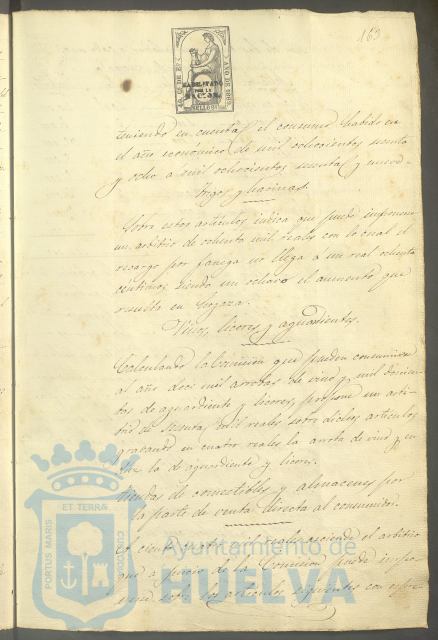 163
AÑO DE 1869
HABILITADO
POR LA
NACION
teniendo en cuenta el consumo habido en
el año económico de mil ochocientos sesenta
y ocho a mil ochocientos sesenta y nueve.
Trigos y harinas.
Sobre estos artículos indica que puede imponerse
un arbitrio de ochenta mil reales con lo cual el
recargo por fanega no llega a un real ochenta
céntimos siendo un ochavo el aumento que
resulta en hogaza.
Vinos, licores y aguardientes.
Calculando la Comisión que pueden consumirse
al año doce mil arrobas de vino y mil
de aguardiente y licores, propone un arbi-
trio de sesenta mil reales sobre dichos artículos
gravando en cuatro reales la arroba de vino y en
la de aguardiente y licores.
Tiendas de comestibles y almacenes por
la parte de venta directa al consumidor.
A ciento y ocho mil reales asciende el arbitrio
que a juicio de la Comisión puede impo-
nerse sobre los artículos siguientes con
PORTUS MARIS ET TERRAE CUSTODIA
Ayuntamiento de
HUELVA